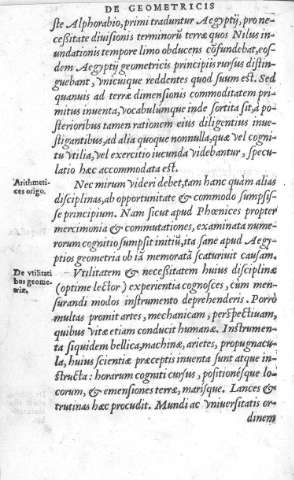 DE GEOMETRICIS
ste Alphorabio, primi traduntur Aegyptij, pro ne-
cessitate diuisionis terminorũ terræ quos Nilus in-
undationis tempore limo obducens cõfundebat, eos-
dem Aegyptij geometricis principijs rursus distin-
guebant, vnicuique reddentes quod suum est. Sed
quanuis ad terræ dimensionis commoditatem pri-
mitus inuenta, vocabulúmque inde sortita sit, à po-
sterioribus tamen rationem eius diligentius inue-
stigantibus, ad alia quoque nonnulla, quæ vel cogni-
tu vtilia, vel exercitio iucunda videbantur, specu-
latio hæc accommodata est.
Arithmeti-
ces origo.
Nec mirum videri debet, tam hanc quàm alias
disciplinas, ab opportunitate & commodo sumpsis-
se principium. Nam sicut apud Phœnices propter
mercimonia & commutationes, examinata nume-
rorum cognitio sumpsit initiũ, ita sane apud Aegy-
ptios geometria ob iã memoratã scaturiuit causam.
De vtilitati
bus geome-
triæ.
Vtilitatem & necessitatem huius disciplinæ
(optime lector) experientia cognosces, cum men-
surandi modos instrumento deprehenderis. Porrò
multas promit artes, mechanicam, perspectiuam,
quibus vitæ etiam conducit humanæ. Instrumen-
ta siquidem bellica, machinæ, arietes, propugnacu-
la, huius scientiæ præceptis inuenta sunt atque in-
structa: horarum cogniti cursus, positionésque lo-
corum, & emensiones terræ, marisque. Lances &
trutinas hæc procudit. Mundi ac vniuersitatis or-
dinem